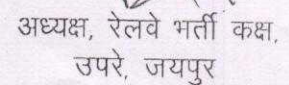 अध्यक्ष, रेलवे भर्ती कक्ष,
उपरे, जयपुर